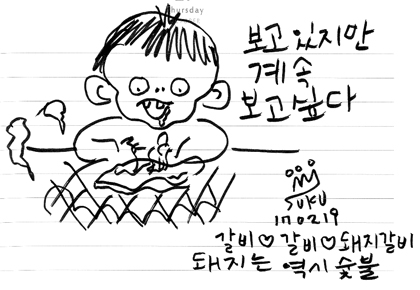 Thursday
보고 있지만
계속
보고싶다
SUKU
170219
갈비♡갈비♡돼지갈비
돼지는 역시 숯불